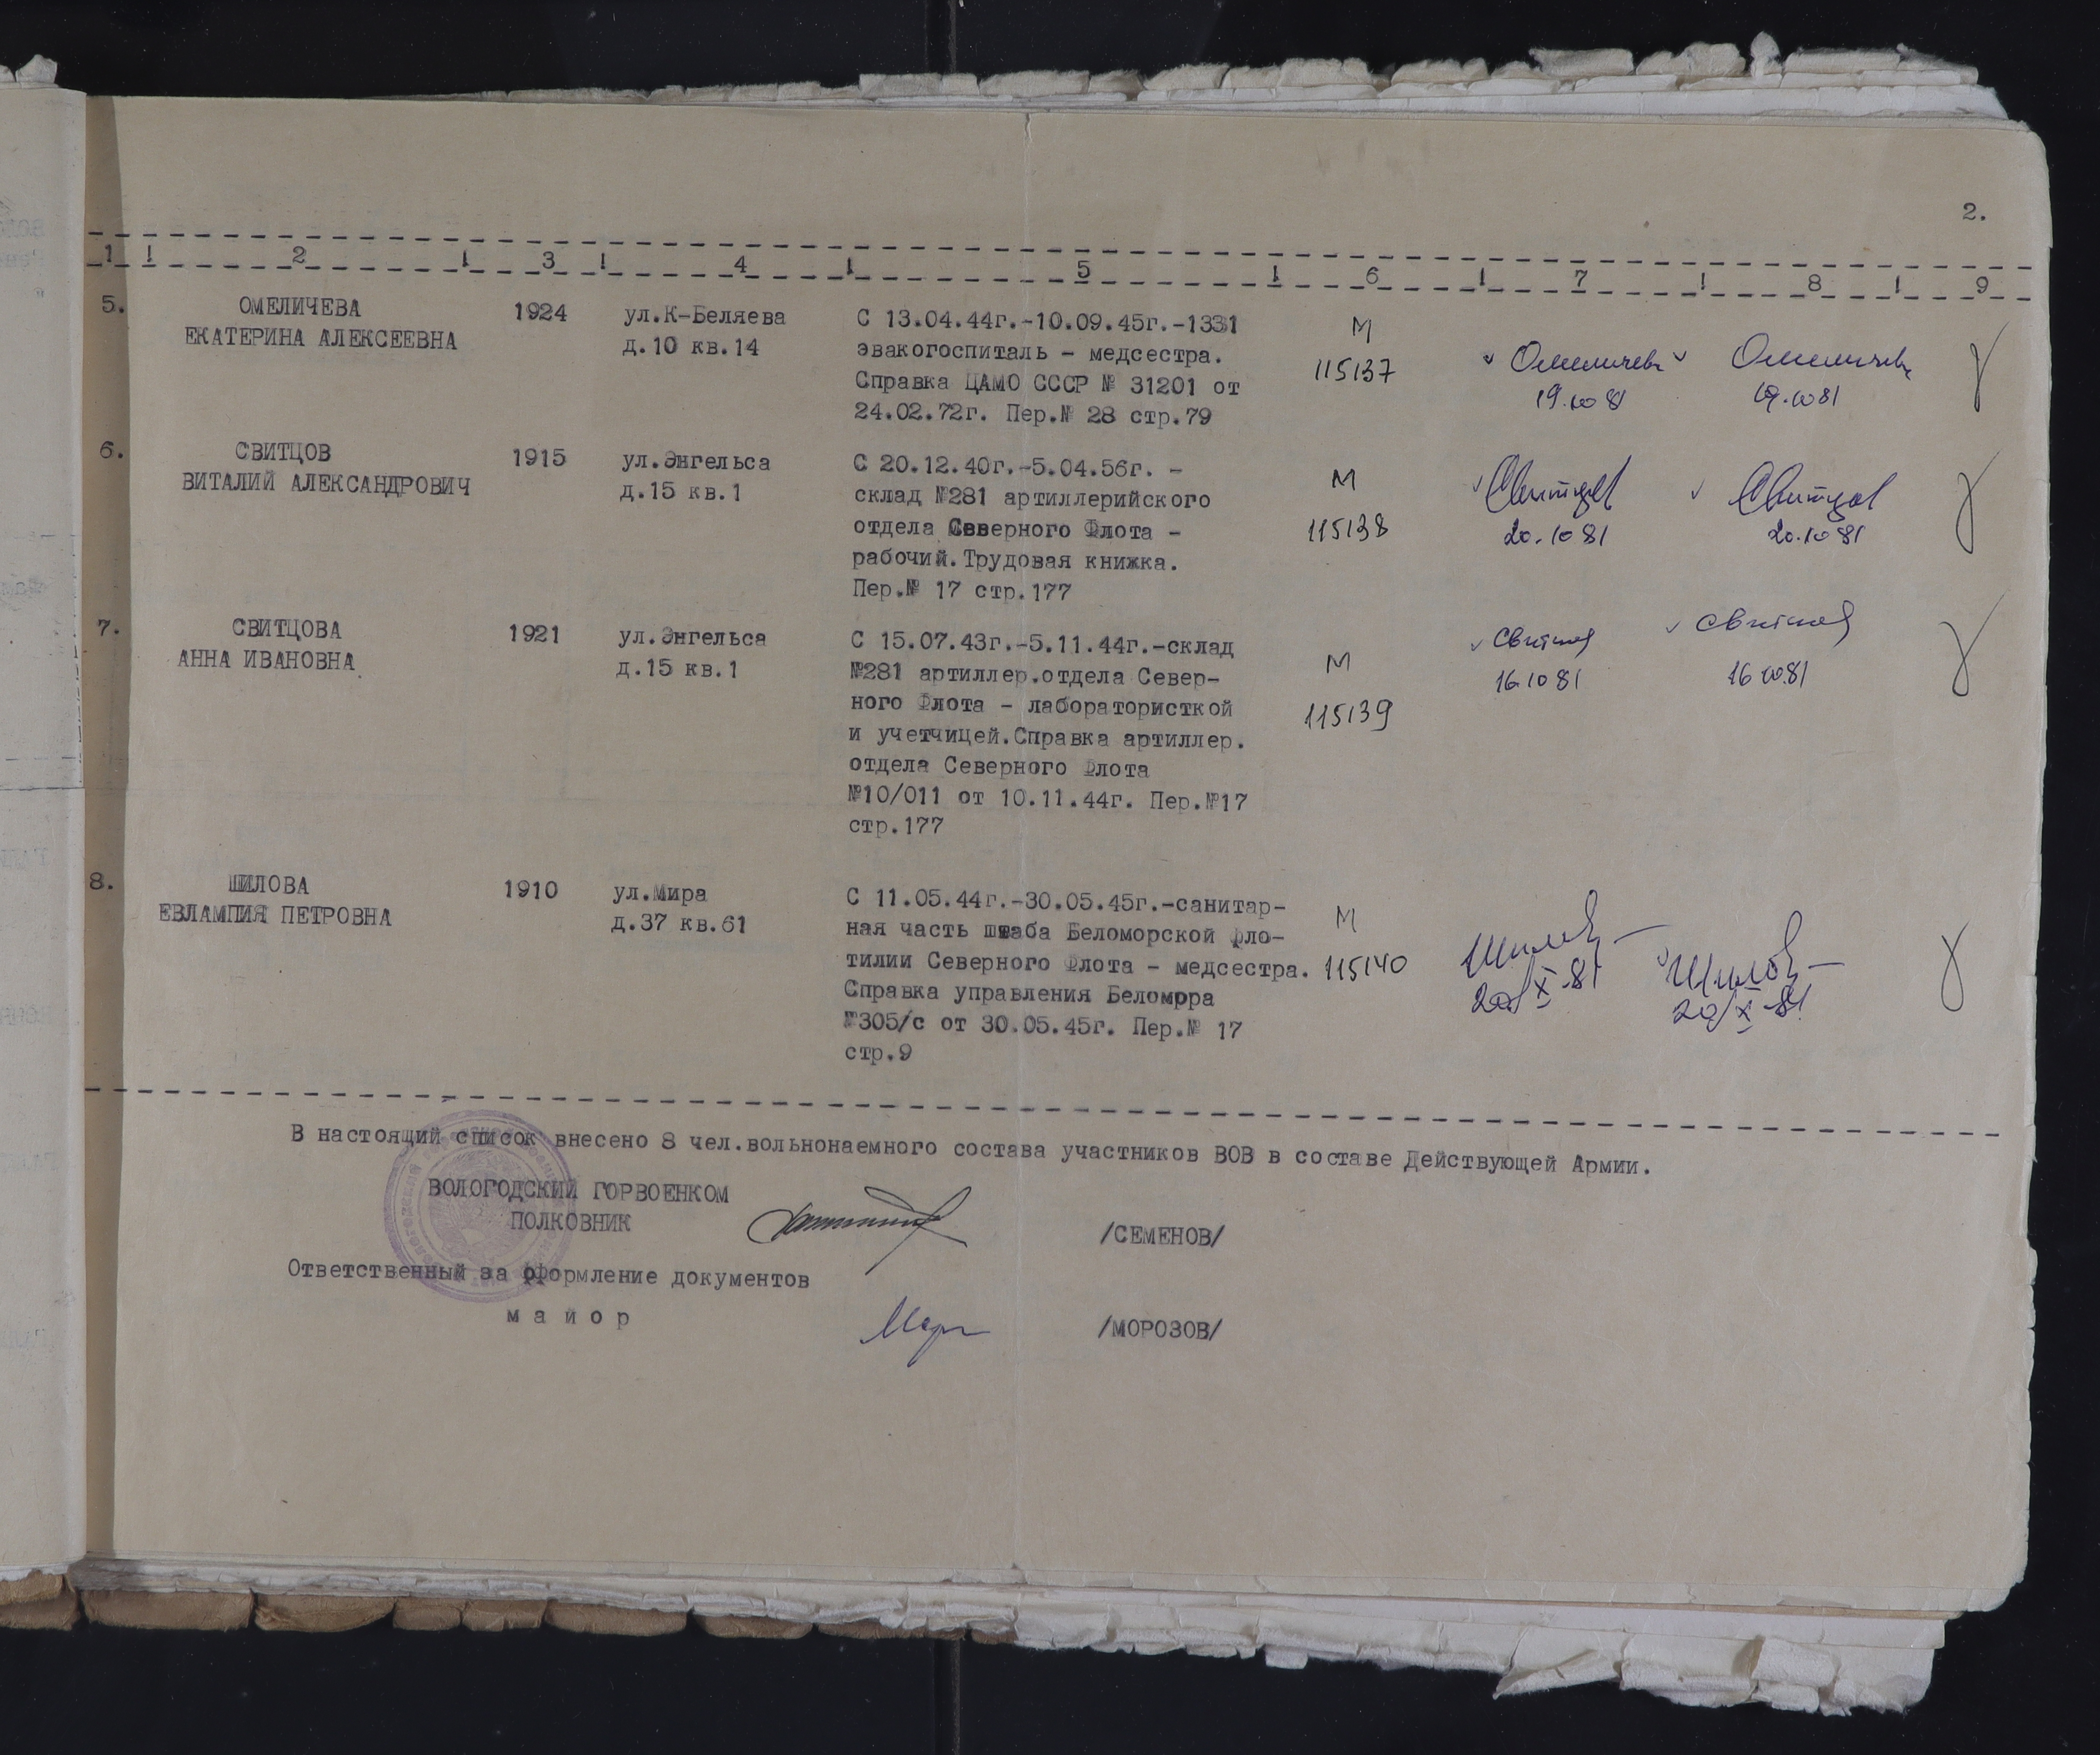 2.
1 ! 2 ! 3 ! 4 ! 5 ! 6 ! 7 ! 8 ! 9
5. ОМЕЛИЧЕВА 1924 ул.К-Беляева С 13.04.44г.-10.09.45г.-1331 М
ЕКАТЕРИНА АЛЕКСЕЕВНА д.10 кв.14 эвакогоспиталь - медсестра. 115137 Омеличева Омеличева
Справка ЦАМО СССР № 31201 от 19.10 81 19.10 81
24.02.72г. Пер.№ 28 стр.79
6. СВИТЦОВ 1915 ул.Энгельса С 20.12.40г.-5.04.56г. - М
ВИТАЛИЙ АЛЕКСАНДРОВИЧ д.15 кв.1 склад №281 артиллерийского Свитцов Свитцов
отдела Северного Флота - 115138 20.10 81 20.10 81
рабочий.Трудовая книжка.
Пер.№ 17 стр.177
7. СВИТЦОВА 1921 ул.Энгельса С 15.07.43г.-5.11.44г.-склад Свитцов Свитцов
АННА ИВАНОВНА д.15 кв.1 №281 артиллер.отдела Север- М 16.10 81 16 10.81
ного Флота - лабораторист кой 115139
и учетчицей.Справка артиллер.
отдела Северного Флота
№10/011 от 10.11.44г. Пер.№17
стр.177
8. ШИЛОВА 1910 ул.Мира С 11.05.44г.-30.05.45г.-санитар- М
ЕВЛАМПИЯ ПЕТРОВНА д.37 кв.61 ная часть штаба Беломорской фло- Шилова Шилова
тилии Северного Флота - медсестра. 115140 20/X-81 20/X-81
Справка управления Беломорра
№305/с от 30.05.45г. Пер.№ 17
стр.9
В настоящий список внесено 8 чел.вольнонаемного состава участников ВОВ в составе Действующей Армии.
ВОЛОГОДСКИЙ ГОРВОЕНКОМ
ПОЛКОВНИК /СЕМЕНОВ/
Ответственный за оформление документов
м а й о р /МОРОЗОВ/